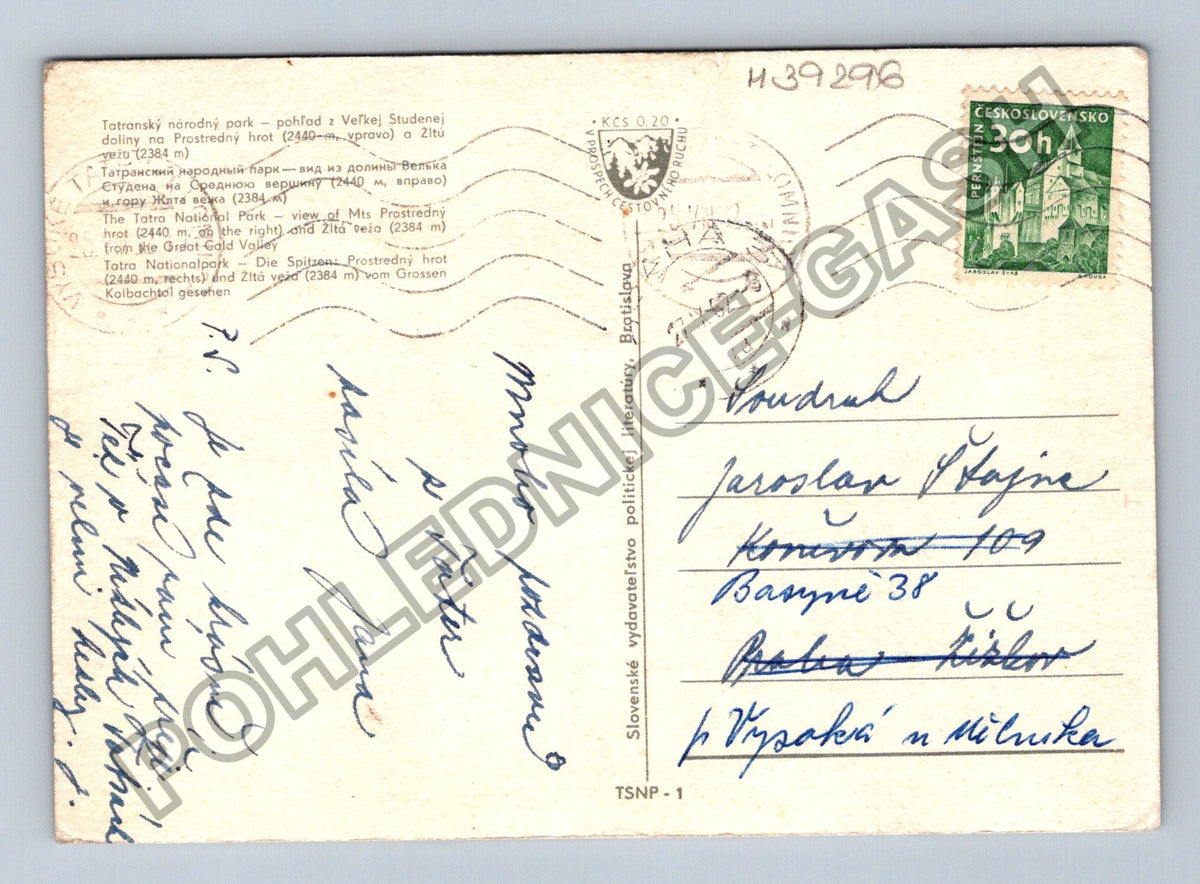 H39296
Tatranský národný park – pohľad z Veľkej Studenej
doliny na Prostredný hrot (2440 m, vpravo) a Žltú
vežu (2384 m)
Татранский народный парк — вид из долины Велька
Студена на Среднюю вершину (2440 м, вправо)
и гору Жлта вежа (2384 м)
The Tatra National Park – view of Mts Prostredný
hrot (2440 m, on the right) and Žltá veža (2384 m)
from the Great Cold Valley
Tatra Nationalpark – Die Spitzen: Prostredný hrot
(2440 m, rechts) and Žltá veža (2384 m) vom Grossen
Kolbachtal gesehen
• KČS 0,20 •
V PROSPECH CESTOVNÉHO RUCHU
ČESKOSLOVENSKO
30h
PERNŠTEJN
JAROSLAV ŠVÁB
Mnoho pozdravů
z Tater
posílá
Jana
P.S.
Je zde krásně
počasí nám přeje.
Též o
je velmi hezky.
Slovenské vydavateľstvo politickej literatúry, Bratislava
TSNP - 1
Soudruh
Jaroslav Štajnc
Koněvova 109
Basyně 38
Praha Žižkov
p Vysoká u Mělníka
POHLEDNICE-GASH